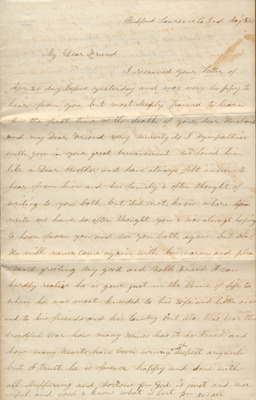 Bedford Lawrence Co Ind May
My Dear Friend
I received your letter of
Apr 26 day before yesterday and was very happy to
hear from you but most deeply pained to learn
for the first time of the death of your dear Husband
and my dear friend very sincerely do I sympathise
with you in your great bereavement We loved him
like a Dear Brother and have always felt anxious to
hear from him and his family & often thought of
writing to you both but did not know where to
write we have so often thought you & was always hoping
to hear from you and see you both again but alas
He will never come again with his warm and
greeting my good and noble friend I can
hardly realize he is gone just in the prime of life to
where he was most needed to his wife and little ones
and to his friends and his Country but alas this war this
dreadful war how many homes has it desolated and
how many Hearts have been wrung with deepest anguish
but I trust he is forever happy and done with
all suffering and sorrow for God is just and
merciful and good & knows what is best for us all